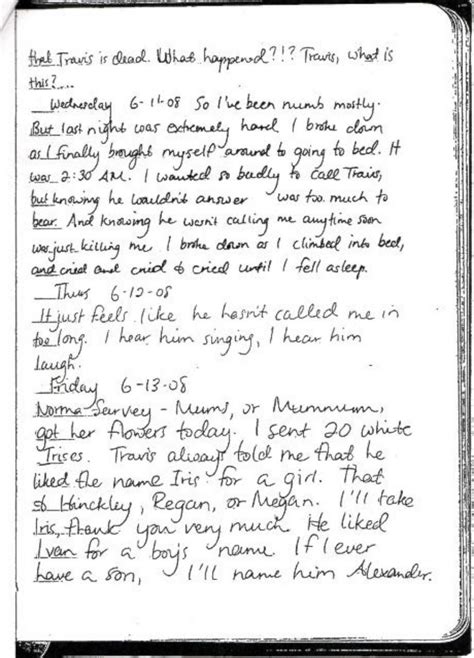 that Travis is dead. What happened?!? Travis, what is
this?....
Wednesday 6-11-08 So I've been numb mostly.
But last night was extremely hard. I broke down
as I finally brought myself around to going to bed. It
was 2:30 AM. I wanted so badly to call Travis,
but knowing he wouldn't answer was too much to
bear. And knowing he wasn't calling me anytime soon
was just killing me. I broke down as I climbed into bed,
and cried and cried & cried until I fell asleep.
Thurs 6-12-08
It just feels like he hasn't called me in
too long. I hear him singing, I hear him
laugh.
Friday 6-13-08
Norma Sarvey - Mums, or Mummum,
got her flowers today. I sent 20 white
Irises. Travis always told me that he
liked the name Iris for a girl. That
Hinckley, Regan, or Megan. I'll take
Iris, thank you very much. He liked
Ivan for a boy's name. If I ever
have a son, I'll name him Alexander.